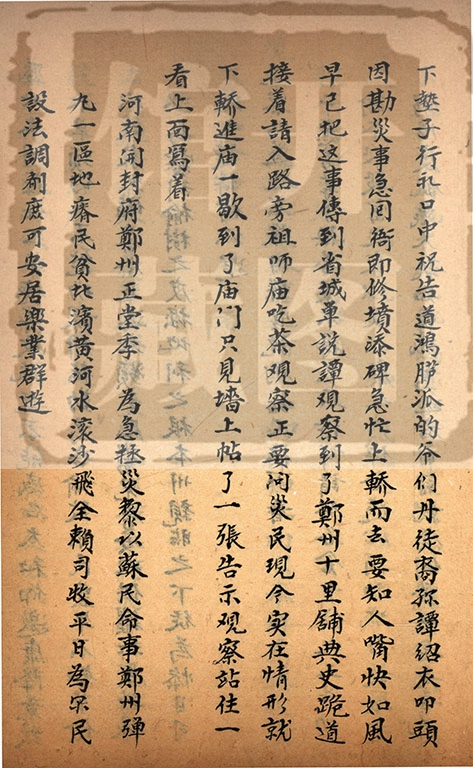 下墊子行礼口中祝告道鴻胪派的爷们丹徒裔孫譚紹衣叩頭
因勘災事急囘衙即修墳添碑急忙上轎而去要知人嘴快如風
早已把这事傳到省城单説譚观察到了鄭州十里舖典史跪道
接着請入路旁祖师庙吃茶观察正要问災民現今实在情形就
下轎進庙一歇到了庙门只見墻上帖了一張告示观察站住一
看上面寫着
河南开封府鄭州正堂季 為急拯災黎以蘇民命事鄭州弹
九一區地瘠民貧北濱黄河水滚沙飛全賴司牧平日為尔民
設法調剂庶可安居樂業群遊